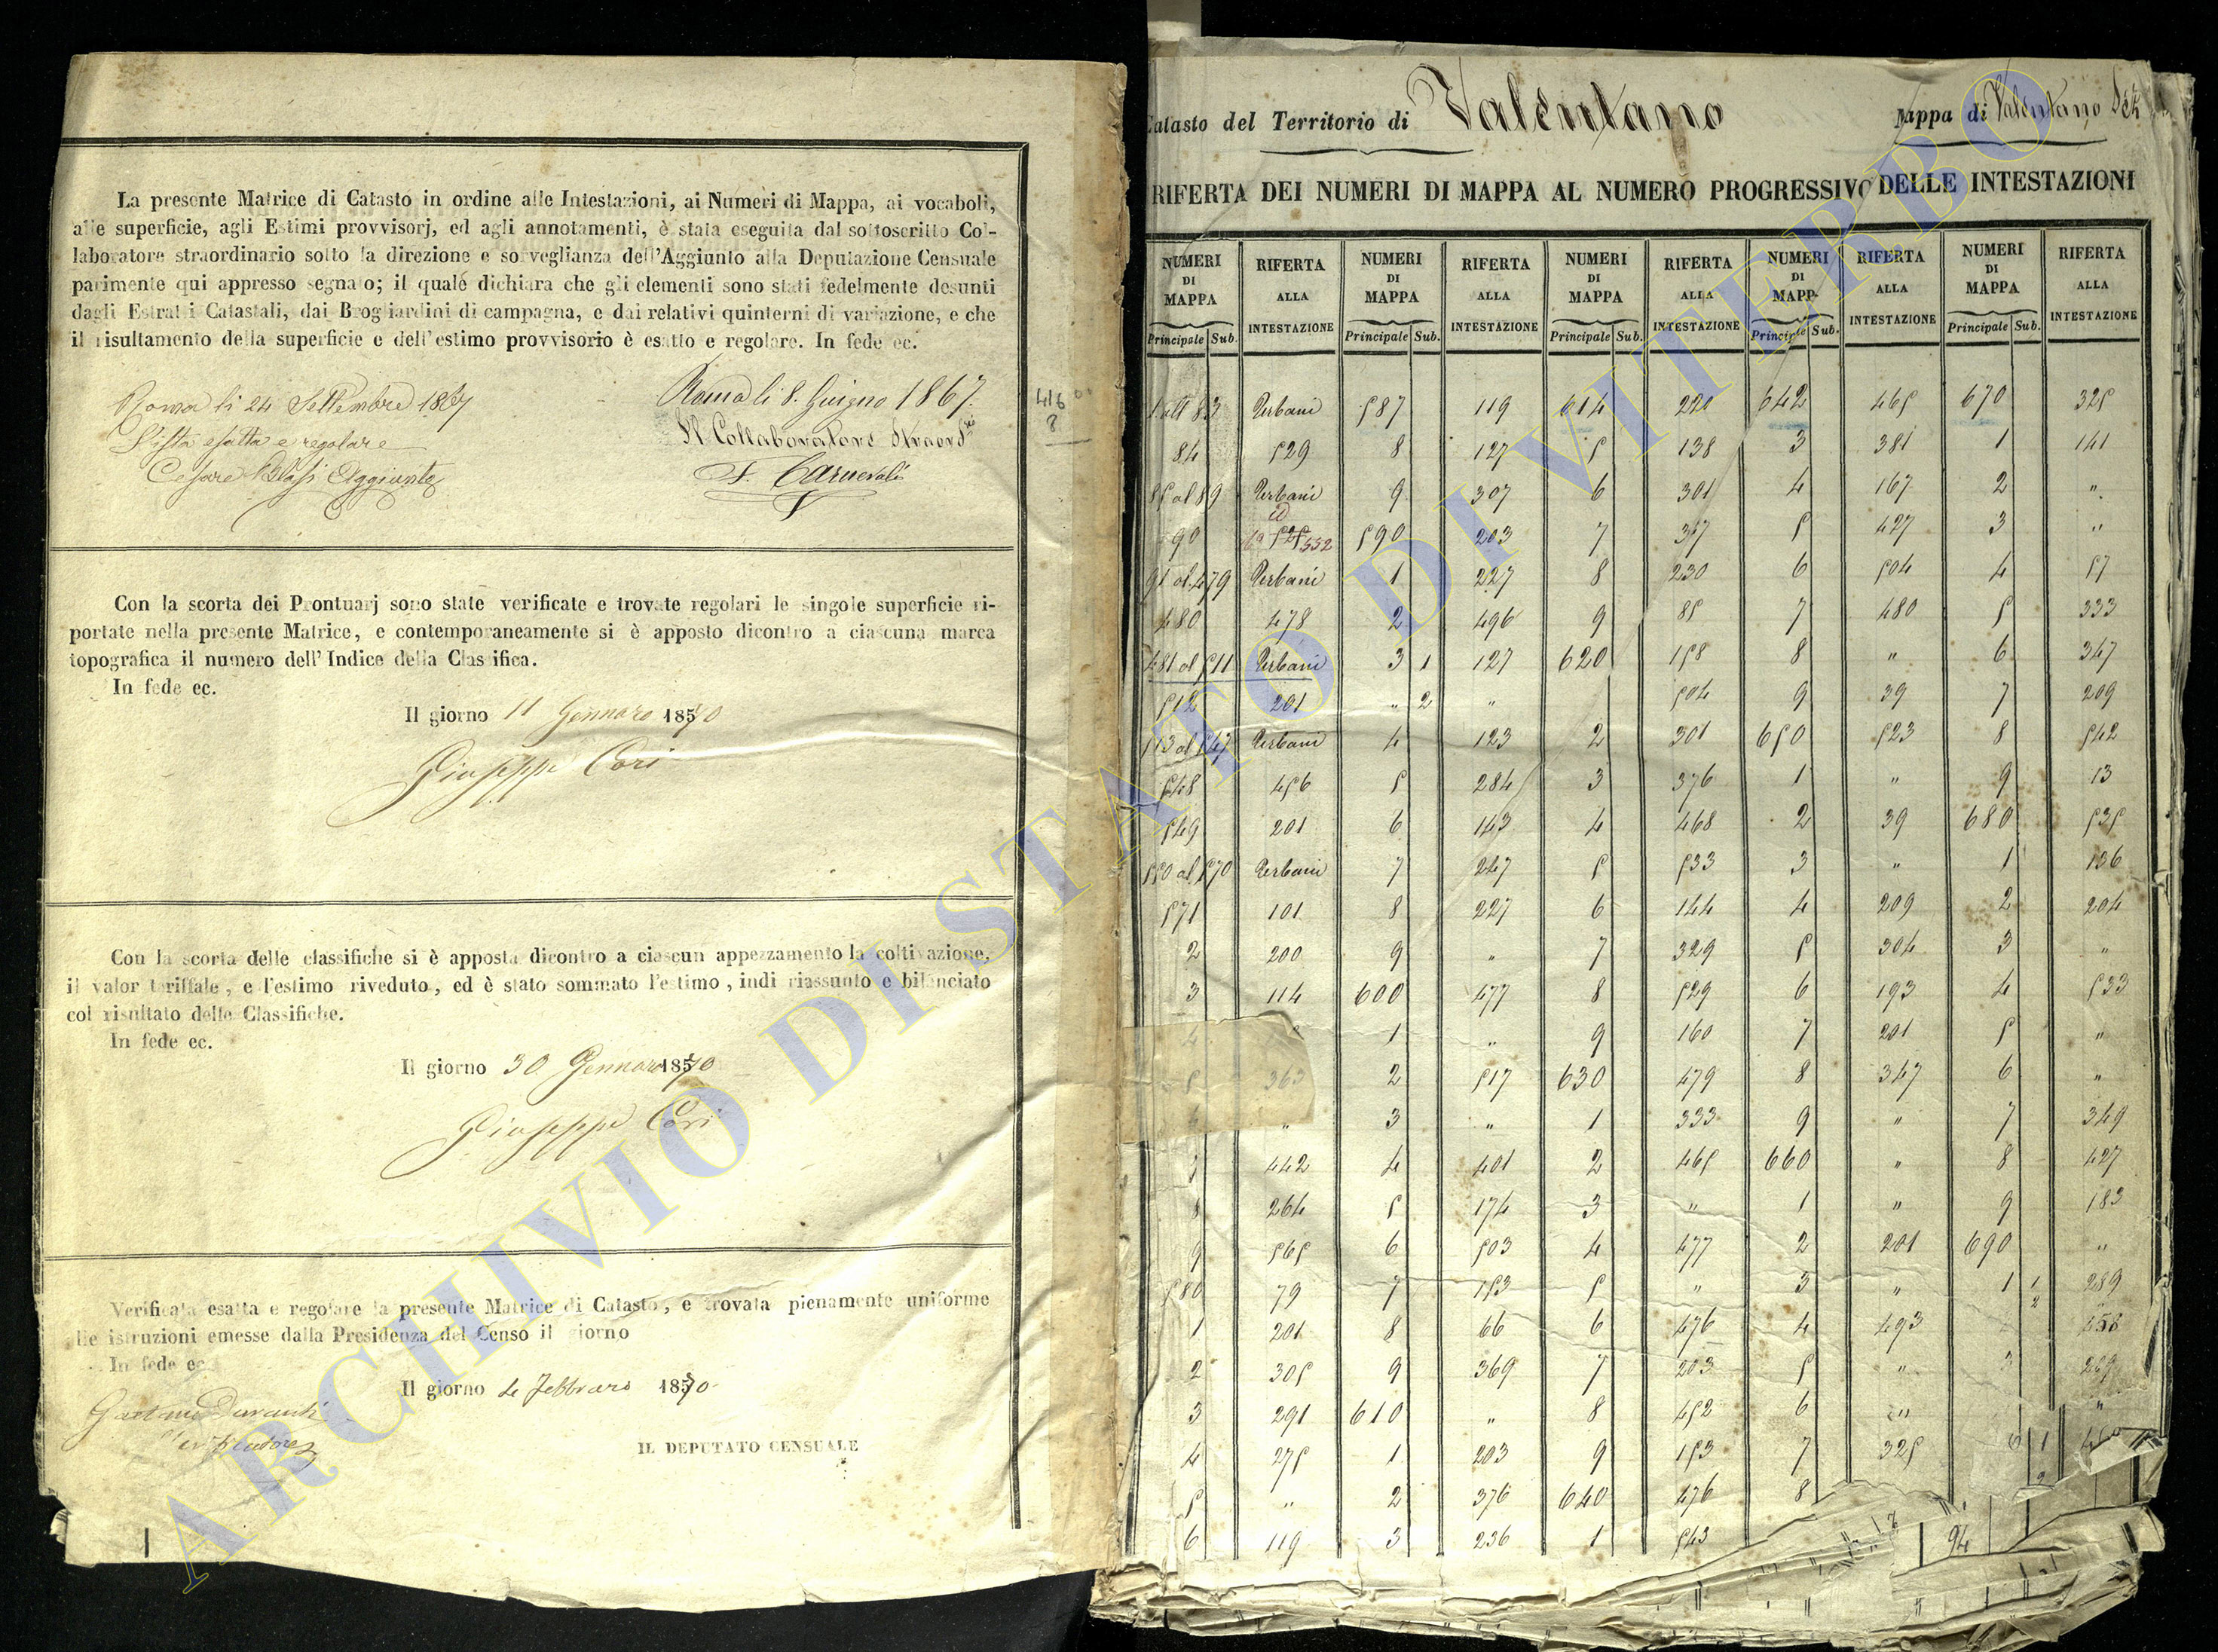 La presente Matrice di Catasto in ordine alle Intestazioni, ai Numeri di Mappa, ai vocaboli,
alle superficie, agli Estimi provvisorj, ed agli annotamenti, è stata eseguita dal sottoscritto Col-
laboratore straordinario sotto la direzione e sorveglianza dell'Aggiunto alla Deputazione Censuale
parimente qui appresso segnato; il quale dichiara che gli elementi sono stati fedelmente desunti
dagli Estratti Catastali, dai Brogliardini di campagna, e dai relativi quinterni di variazione, e che
il risultamento della superficie e dell'estimo provvisorio è esatto e regolare. In fede ec.
Roma li 24 Settembre 1867
Vista esatta e regolare
Cesare Blasi Aggiunto
Roma li 8. Giugno 1867.
Il Collaboratore Straord
F. Carnevali
416
8
Con la scorta dei Prontuarj sono state verificate e trovate regolari le singole superficie ri-
portate nella presente Matrice, e contemporaneamente si è apposto dicontro a ciascuna marca
topografica il numero dell'Indice della Classifica.
In fede ec.
Il giorno 11 Gennaro 1870
Giuseppe Cori
Con la scorta delle classifiche si è apposta dicontro a ciascun appezzamento la coltivazione,
il valor tariffale, e l'estimo riveduto, ed è stato sommato l'estimo, indi riassunto e bilanciato
col risultato delle Classifiche.
In fede ec.
Il giorno 30 Gennaro 1870
Giuseppe Cori
Verificata esatta e regolare la presente Matrice di Catasto, e trovata pienamente uniforme
alle istruzioni emesse dalla Presidenza del Censo il giorno
In fede ec.
Il giorno 4 Febbraro 1870
Gaetano Duranti
Verificatore
IL DEPUTATO CENSUALE
Catasto del Territorio di Valentano Mappa di Valentano Sez
RIFERTA DEI NUMERI DI MAPPA AL NUMERO PROGRESSIVO DELLE INTESTAZIONI
NUMERI DI MAPPA RIFERTA ALLA INTESTAZIONE NUMERI DI MAPPA RIFERTA ALLA INTESTAZIONE NUMERI DI MAPPA RIFERTA ALLA INTESTAZIONE NUMERI DI MAPPA RIFERTA ALLA INTESTAZIONE NUMERI DI MAPPA RIFERTA ALLA INTESTAZIONE
Principale Sub. Principale Sub. Principale Sub. Principale Sub. Principale Sub.
1 all 83 Urbani 587 119 614 220 642 465 670 325
84 529 8 127 5 138 3 381 1 141
85 al 89 Urbani 9 307 6 301 4 167 2 "
90 525 532 590 203 7 347 5 427 3 "
91 al 479 Urbani 1 227 8 230 6 504 4 57
480 478 2 496 9 85 7 480 5 333
481 al 511 Urbani 3 1 127 620 158 8 " 6 347
512 201 " 2 " 504 9 39 7 209
513 al 547 Urbani 4 123 2 301 650 523 8 542
548 456 5 284 3 376 1 " 9 13
549 201 6 143 4 468 2 39 680 535
550 al 570 Urbani 7 247 5 533 3 " 1 136
571 101 8 227 6 144 4 209 2 204
2 200 9 " 7 329 5 304 3 "
3 114 600 477 8 529 6 193 4 533
4 1 " 9 160 7 201 5 "
5 363 2 517 630 479 8 347 6 "
" 3 " 1 333 9 " 7 349
7 442 4 401 2 465 660 " 8 427
8 264 5 174 3 " 1 " 9 183
9 565 6 503 4 477 2 201 690 "
580 79 7 153 5 " 3 " 1 1 289
2
1 201 8 66 6 476 4 493
2 305 9 369 7 203 5 " 3 269
3 291 610 " 8 452 6 " "
4 275 1 203 9 153 7 325 6 1
5 " 2 376 640 476 8
6 119 3 236 1 543 94
ARCHIVIO DI STATO DI VITERBO